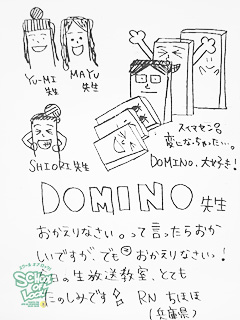 YU-MI
先生
MAYU
先生
SHIORI 先生
変になっちゃった...。
DOMINO、大好き!
DOMINO 先生
おかえりなさい。って言ったらおか
しいですが、でもおかえりなさい!
日の生放送教室、とても
たのしみです
RN ちほほ
(兵庫県)
SCHOOL
OF
LOCK!